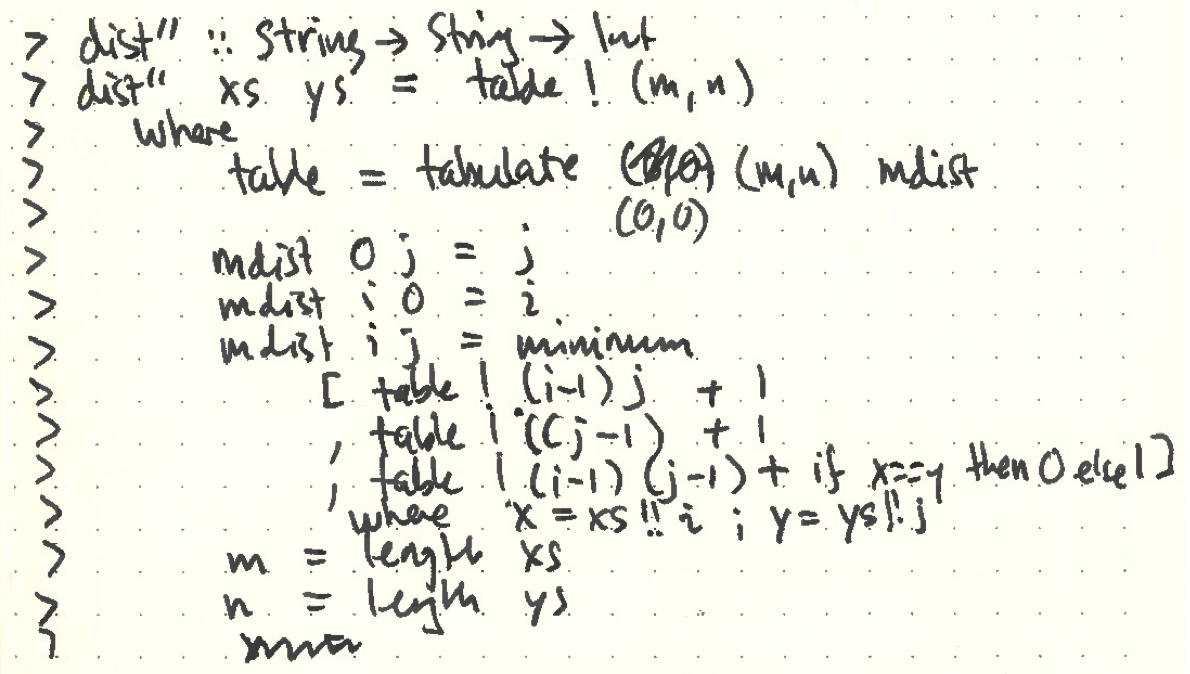 > dist'' :: String → String → Int
> dist'' xs ys = table ! (m,n)
> where
> table = tabulate (m,n) mdist
> (0,0)
> mdist 0 j = j
> mdist i 0 = i
> mdist i j = minimum
> [ table ! (i-1) j + 1
> , table ! i (j-1) + 1
> , table ! (i-1) (j-1) + if x==y then 0 else 1 ]
> where x = xs !! i ; y = ys !! j
> m = length xs
> n = length ys
>